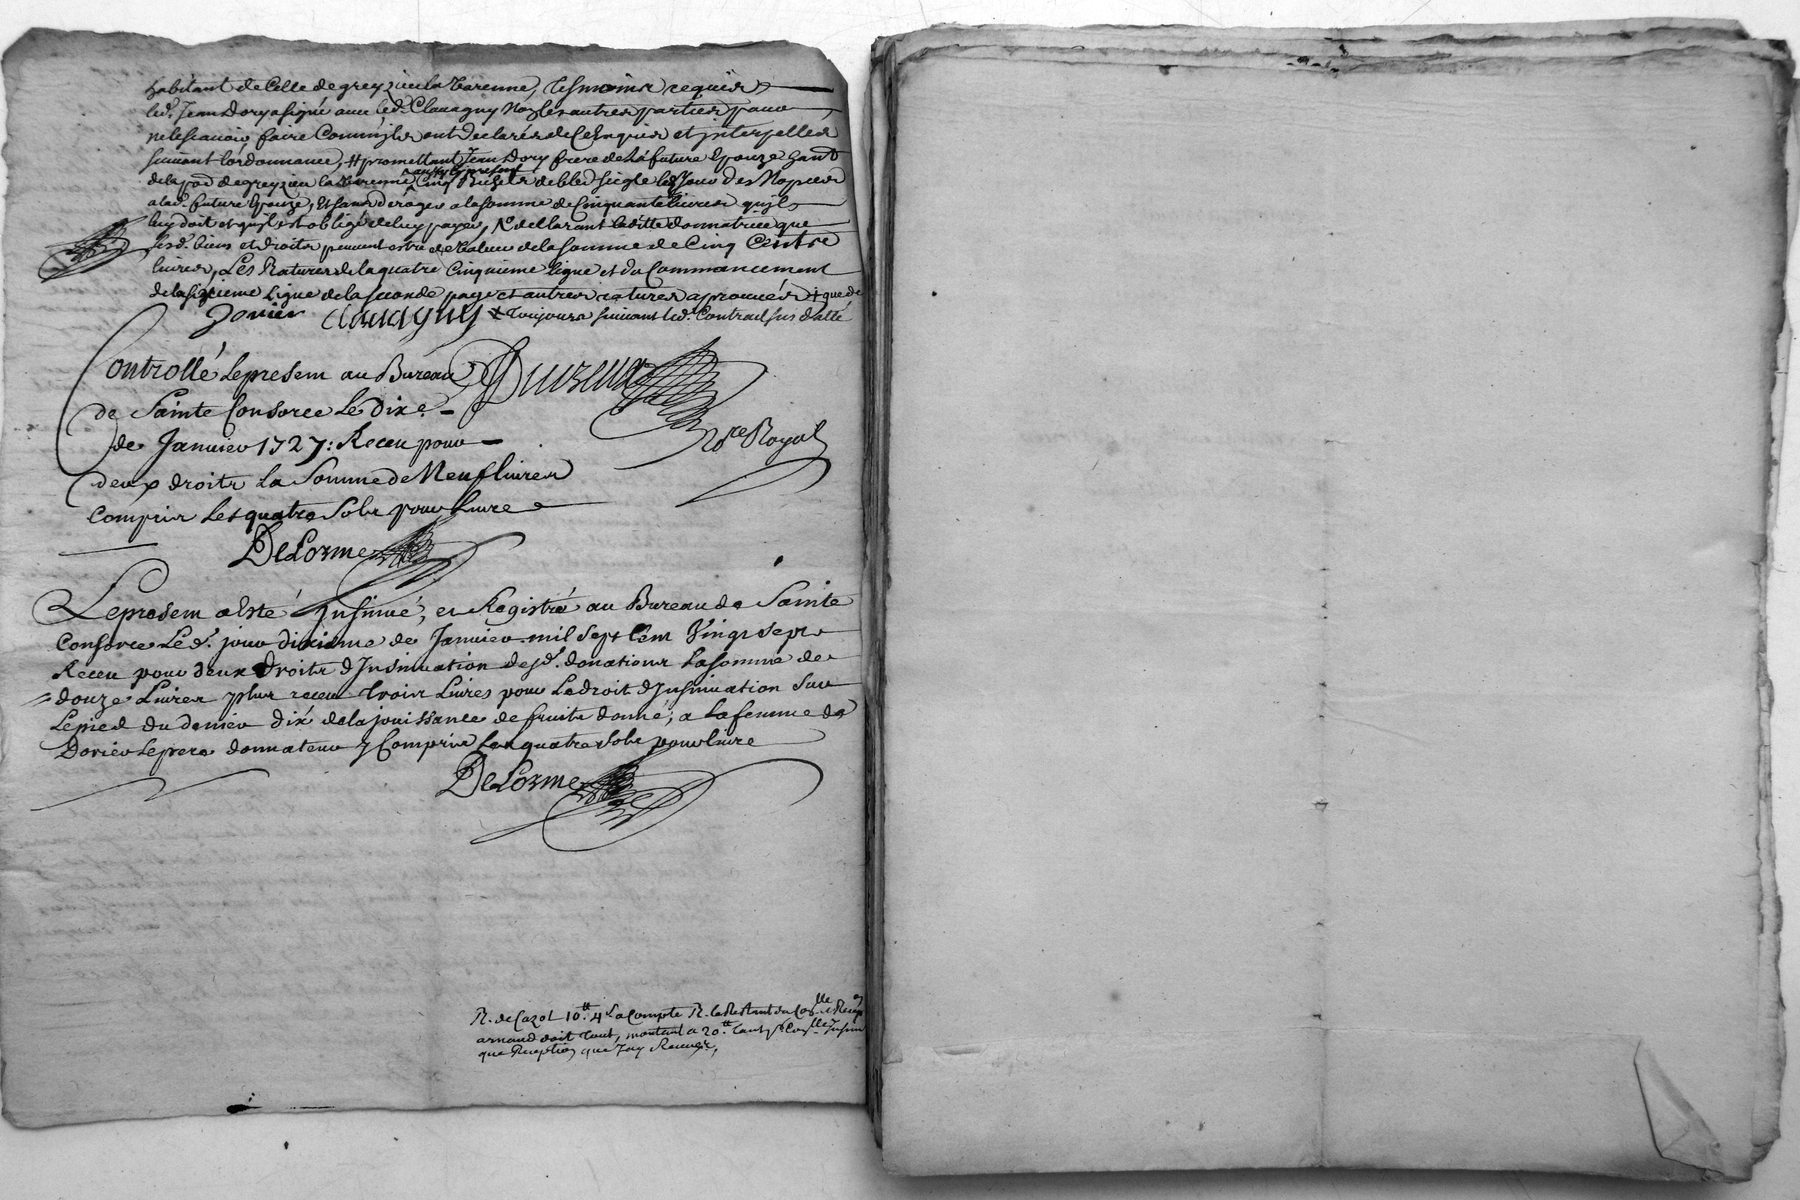 habitant de Celle de greyzieu la Varenne, tesmoins requis
led. Jean Dory a signé avec led. Clavagny Non les autres parties pour
ne le scavoir faire Comm'jls ont declarés de Ce Enquis et jnterpellés
suivant l'ordonnance, # promettant Jean Dory frere de la future Epouze
de la par de greyzieu la Varenne aussy Cy present Cinq Bichets de bled seigle le Jour des Nopces
a lad. future Epouze, Et sans deroger a la somme de Cinquante livres qu'jl
luy doit et qu'jl est obligé de luy payer, declarant laditte donnatrice que
sesd. biens et droits peuvent estre de Valeur de la somme de Cinq Cents
livres, Les Ratures de la quatre Cinquieme ligne et du Commancement
de la sixieme Ligne de la seconde page et autres ratures aprouvées + que de
Dorier Clavagny + toujours suivant led. Contract sus datté
Controllé Le presem au Bureau
de Sainte Consorce Le dixe
de Janvier 1727: Receu pour
deux droits La Somme de Neuf livres
Compris Les quatre Sols pour Livre
Nre Royal
DeLorme
Le presem a Esté Jnsinué, et Registré au Bureau de Sainte
Consorce Led. jour dixieme de Janvier mil sept Cent Vingt sept
Receu pour deux Droits d'Jnsinuation desd. donations La somme de
douze Livres plus receu trois Livres pour Le droit d'Jnsinuation sur
Le pied du denier dix de la jouissance de fruits donné, a la femme de
Dorier Le pere donnateur y Compris Les quatre sols pour livre
DeLorme
R. de Cazot 10tt. 4 La Compte R. le Restant du
arnaud doit tout, montant a 20tt. tant
que Reception que J'ay Receues,